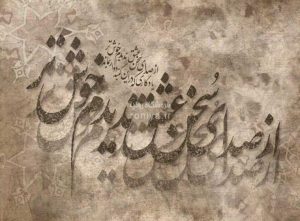 از صدای سخن عشق ندیدم خوش تر
از صدای سخن عشق ندیدم خوش تر
یادگاری که در این گنبد دوار بماند